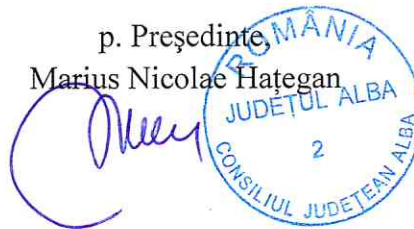 p. Preşedinte,
Marius Nicolae Haţegan
ROMÂNIA
JUDEŢUL ALBA
2
CONSILIUL JUDEŢEAN ALBA